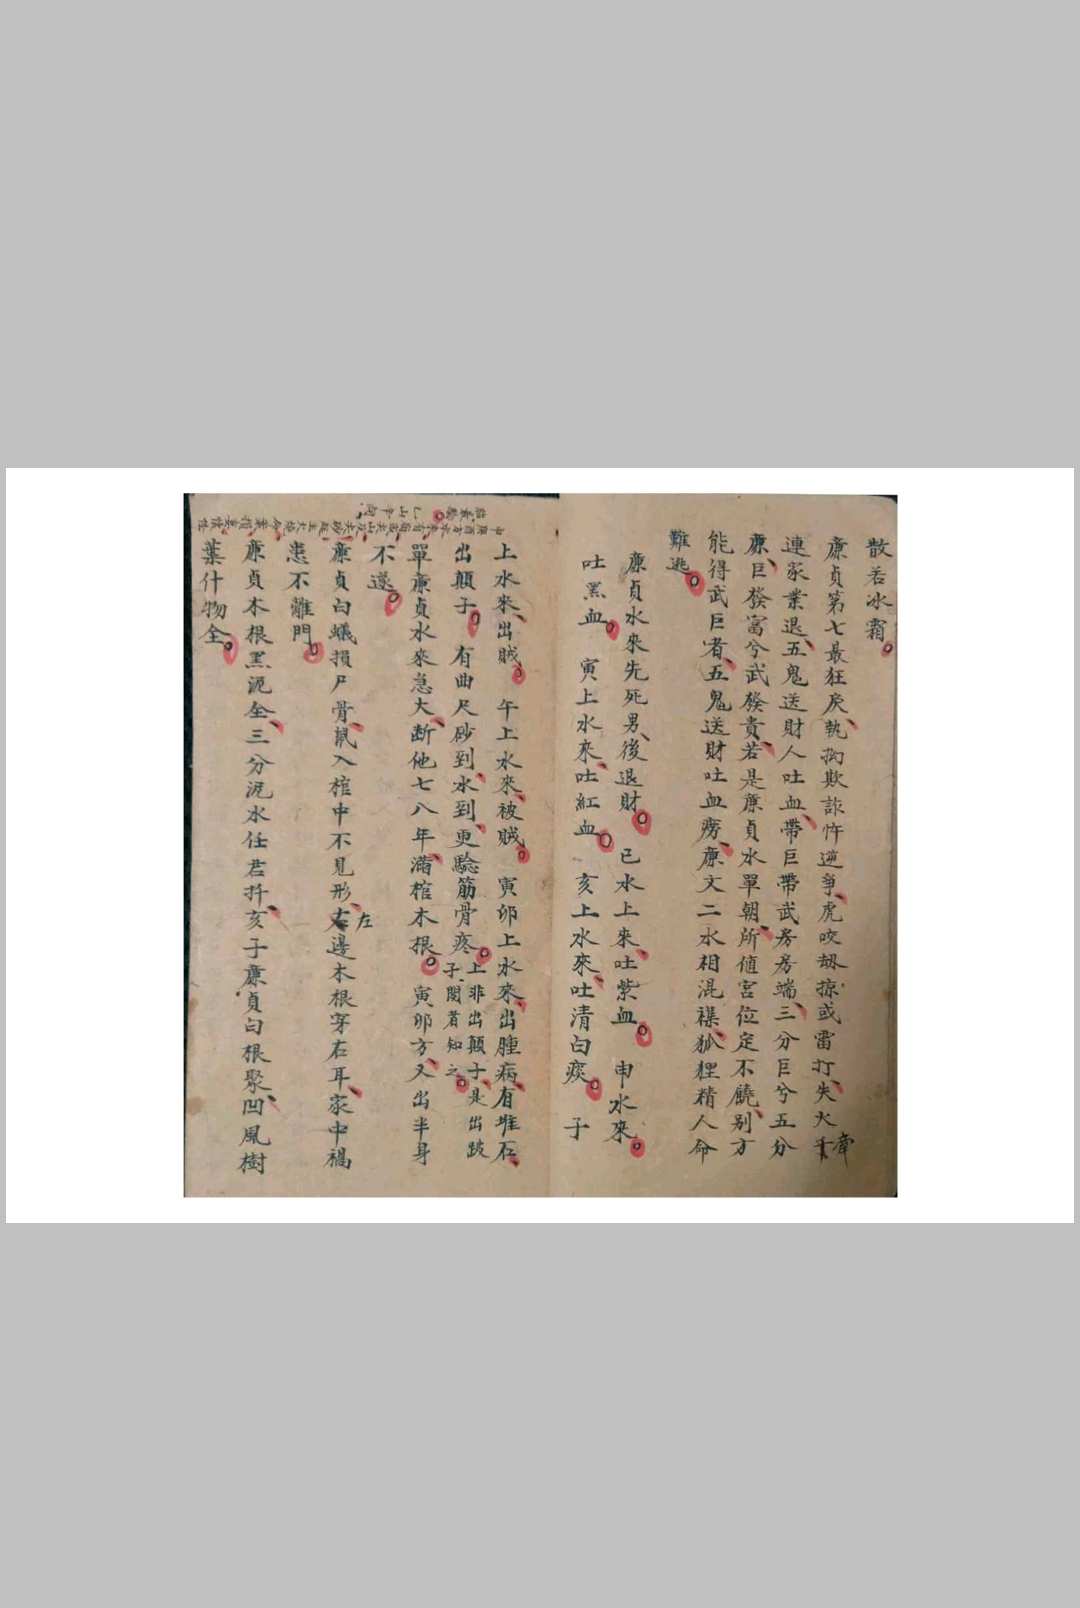 散若冰霜
廉貞第七最狂戾執拗欺詐忤逆爭虎咬刼掠或雷打失火牽
連家業退五鬼送財人吐血帶巨帶武房房端三分巨兮五分
廉巨發富兮武發貴若是廉貞水單朝所值宮位定不饒别方
能得武巨者五鬼送財吐血癆廉文二水相混襍狐狸精人命
難逃
廉貞水來先死男後退財 巳水上來吐紫血 申水來
吐黑血 寅上水來吐紅血 亥上水來吐清白痰 子
上水來出賊 午上水來被賊 寅卯上水來出腫病有堆石
出顛子 有曲尺砂到水到更騐筋骨疼 上非出顛子是出跛
子閲者知之
單廉貞水來急大断他七八年滿棺木根 寅卯方又出半身
不遂
廉貞白蟻損尸骨鼠入棺中不見形左邊木根穿右耳家中禍
患不離門
廉貞木根黑泥全三分泥水任君扦亥子廉貞白根聚凹風樹
葉什物全